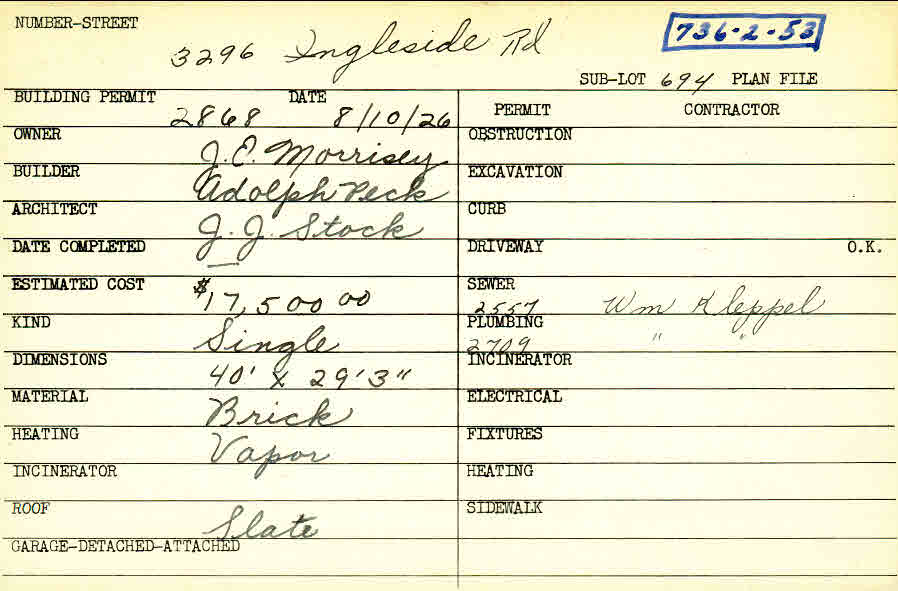 NUMBER-STREET
3296 Ingleside Rd
736-2-53
SUB-LOT 694 PLAN FILE
BUILDING PERMIT 2868 DATE 8/10/26
PERMIT CONTRACTOR
OWNER J. E. Morrisey
OBSTRUCTION
BUILDER Adolph Peck
EXCAVATION
ARCHITECT J. J. Stock
CURB
DATE COMPLETED —
DRIVEWAY O.K.
ESTIMATED COST $17,500 00
SEWER 2557 Wm Kleppel
KIND Single
PLUMBING 2709 " "
DIMENSIONS 40' x 29'3"
INCINERATOR
MATERIAL Brick
ELECTRICAL
HEATING Vapor
FIXTURES
INCINERATOR
HEATING
ROOF Slate
SIDEWALK
GARAGE-DETACHED-ATTACHED